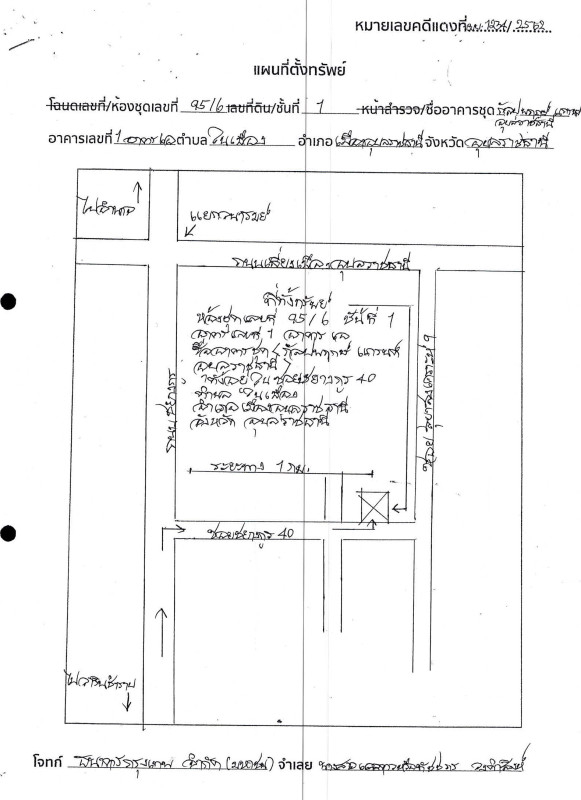 หมายเลขคดีแดงที่ผบ.1234/2562
แผนที่ตั้งทรัพย์
โฉนดเลขที่/ห้องชุดเลขที่ 95/6 เลขที่ดิน/ชั้นที่ 1 หน้าสำรวจ/ชื่ออาคารชุด
อุบลราชธานี
อาคารเลขที่ 1 อาคาร เอ ตำบล ในเมือง อำเภอ เมืองอุบลราชธานี จังหวัด อุบลราชธานี
ไปอำนาจ
ถนนเลี่ยงเมืองอุบลราชธานี
ที่ตั้งทรัพย์
ห้องชุดเลขที่ 95/6 ชั้นที่ 1
อาคารเลขที่ 1 อาคาร เอ
ชื่ออาคารชุด
อุบลราชธานี
ตั้งอยู่ในซอยชยางกูร 40
ตำบล ในเมือง
อำเภอเมืองอุบลราชธานี
จังหวัด อุบลราชธานี
ถนน ชยางกูร
ระยะทาง 1 กม.
ซอยชยางกูร 40
ไปวารินชำราบ
โจทก์ ธนาคารกรุงเทพ จำกัด (มหาชน) จำเลย